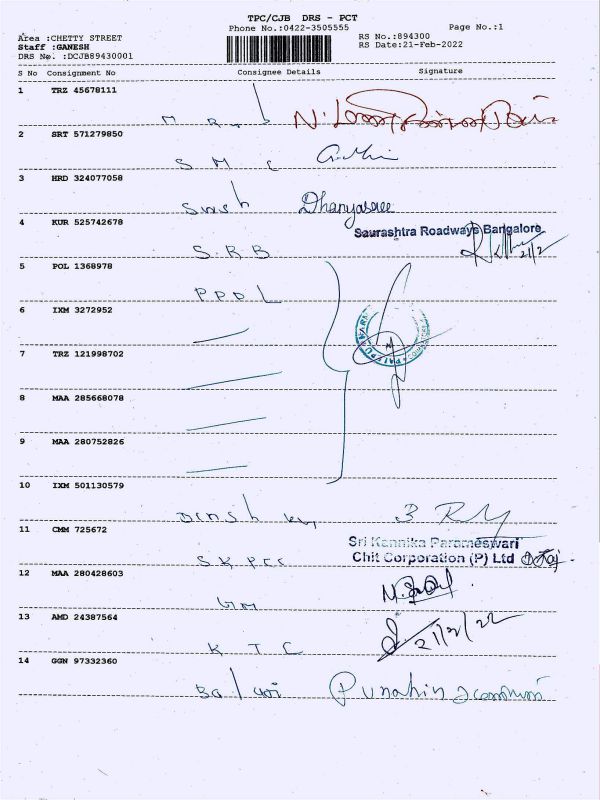 TPC/CJB DRS - PCT
Phone No.:0422-3505555 Page No.:1
Area :CHETTY STREET RS No.:894300
Staff :GANESH RS Date:21-Feb-2022
DRS No. :DCJB89430001
S No Consignment No Consignee Details Signature
1 TRZ 45678111
2 SRT 571279850
S M C
3 HRD 324077058
Dhanyasree
4 KUR 525742678
Saurashtra Roadways Bangalore
S.R.B 21/2
5 POL 1368978
P P D L
6 IXM 3272952
7 TRZ 121998702
8 MAA 285668078
9 MAA 280752826
10 IXM 501130579
11 CMM 725672
Sri Kannika Parameswari
Chit Corporation (P) Ltd
S K P C C
12 MAA 280428603
13 AMD 24387564
21/2/22
K T C
14 GGN 97332360